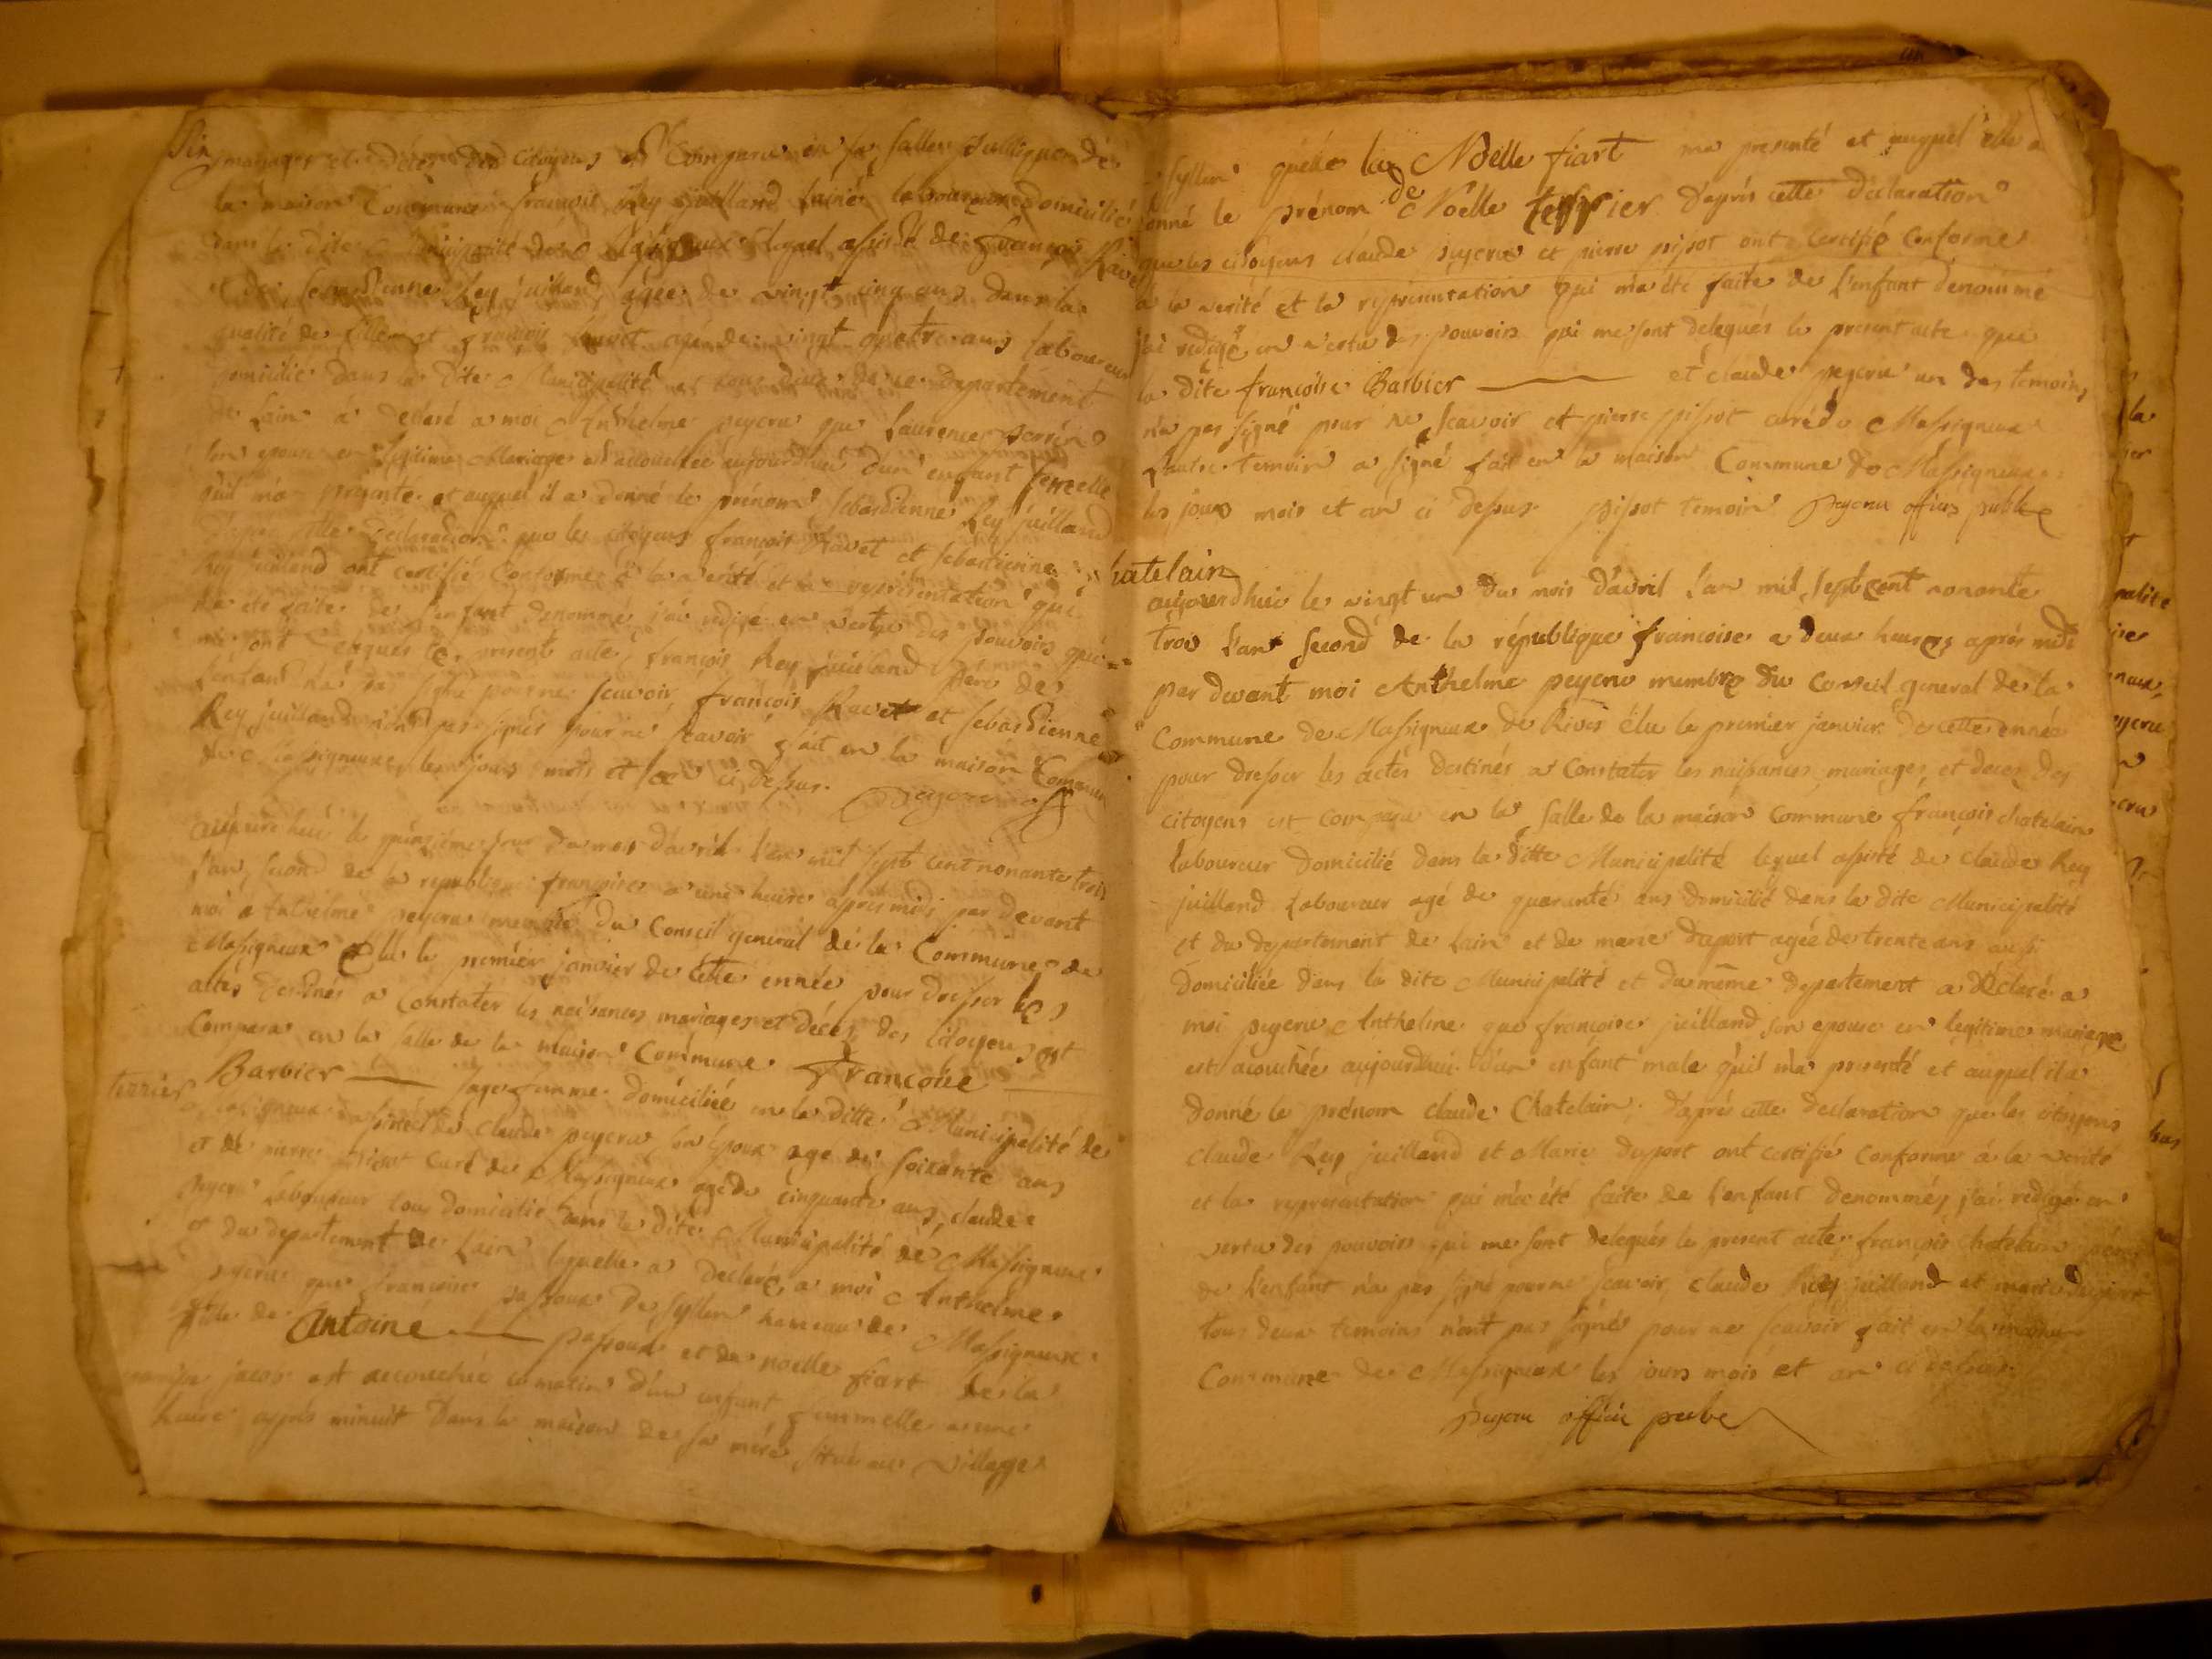 mariages et décés des citoyens est Comparu en la salle publique de
la maison Commune françois Rey juilland lainé laboureur domicilié
dans la dite Municipalité de Massigneux lequel assisté de françois Ravet
et de sebastienne Rey juilland agée de vingt cinq ans dans la
qualité de fille et françois Ravet agé de vingt quatre ans laboureur
domicilié dans la dite Municipalité tous deux de ce departement
de Lain a declaré a moi Anthelme peycru que Laurence perrin
son epouse en legitime Mariage est accouchée aujourdhui dun enfant femelle
quil m'a presenté et auquel il a donné le prénom sebastienne Rey juilland
d'aprés cette declaration que les citoyens françois Ravet et sebastienne
Rey juilland ont certifiés Conforme a la verité et la representation qui
ma été faite de l'enfant denommé j'ai redigé en vertu des pouvoirs qui
me sont delegués le present acte françois Rey juilland pere de
l'enfant n'a pas signé pour ne scavoir, françois Ravet et sebastienne
Rey juilland n'ont pas signés pour ne scavoir fait en la maison Commune
de Massigneux les jours mois et an ci dessus.
aujourdhui le quinzieme jour du mois d'avril l'an mil sept cent nonante trois
l'an second de la republique françoise a une heure aprés midi par devant
moi Anthelme peycru membre du Conseil general de la Commune de
Massigneux élu le premiér janvier de cette année pour dresser les
actes destinés a Constater les naisances mariages et décés des citoyens est
Comparu en la salle de la maison Commune Françoise
Barbier sage femme domiciliée en la ditte Municipalité de
terrier
Massigneux assistée de claude peycru son époux agé de soixante ans
et de pierre pissot Curé de Massigneux agé de cinquante ans, claude
peycru laboureur tous domicilié dans la dite Municipalité de Massigneux
et du departement de Lain laquelle a declaré a moi Anthelme
peycru que françoise passoux de syllin hameau de Massigneux
fille de Antoine passoux et de noelle fiart de la
est accouchée ce matin d'un enfant femmelle a une
heure aprés minuit dans la maison de sa mére située au village
syllin quelle la Noelle fiart ma presenté et auquel elle a
donné le prénom de Noëlle terrier d'aprés cette declaration
que les citoyens claude peycru et pierre pissot ont certifié conforme
a la verité et la representation qui m'a été faite de l'enfant denommé
j'ai redigé en vertu des pouvoirs qui me sont delegués le present acte que
la dite françoise Barbier et claude peycru un des temoins
n'a pas signé pour ne scavoir et pierre pissot curé de Massigneux
l'autre temoin a signé fait en la maison Commune de Massigneux
les jours mois et an ci dessus. pissot temoin peycru officier public
chatelain
aujourdhui le vingt un du mois d'avril l'an mil sept cent nonante
trois l'an second de la république françoise a deux heures aprés midi
par devant moi Anthelme peycru membre du Conseil general de la
Commune de Massigneux de Rives élu le premier janvier de cette année
pour dresser les actes destinés a Constater les naisances, mariages, et deces des
citoyens est comparu en la salle de la maison commune françois chatelain
laboureur domicilié dans la ditte Municipalité lequel assisté de claude Rey
juilland Laboureur agé de quarante ans domicilié dans la dite Municipalité
et du departement de Lain et de marie duport agée de trente ans aussi
domiciliée dans la dite Municipalité et du même departement a declaré a
moi peycru Anthelme que françoise juilland son epouse en legitime mariage
est acouchée aujourdhui d'un enfant male qu'il m'a presenté et auquel il a
donné le prénom claude Chatelain. d'aprés cette declaration que les citoyens
claude Rey juilland et Marie duport ont certifié Conforme á la verité
et la representation qui m'a été faite de l'enfant denommés j'ai redigé en
vertu des pouvoirs qui me sont delegués le present acte françois Chatelain pére
de l'enfant n'a pas signé pour ne scavoir, claude Rey juilland et marie duport
tous deux temoins n'ont pas signés pour ne scavoir fait en la maison
Commune de Massigneux les jours mois et an ci dessus.
peycru officier public